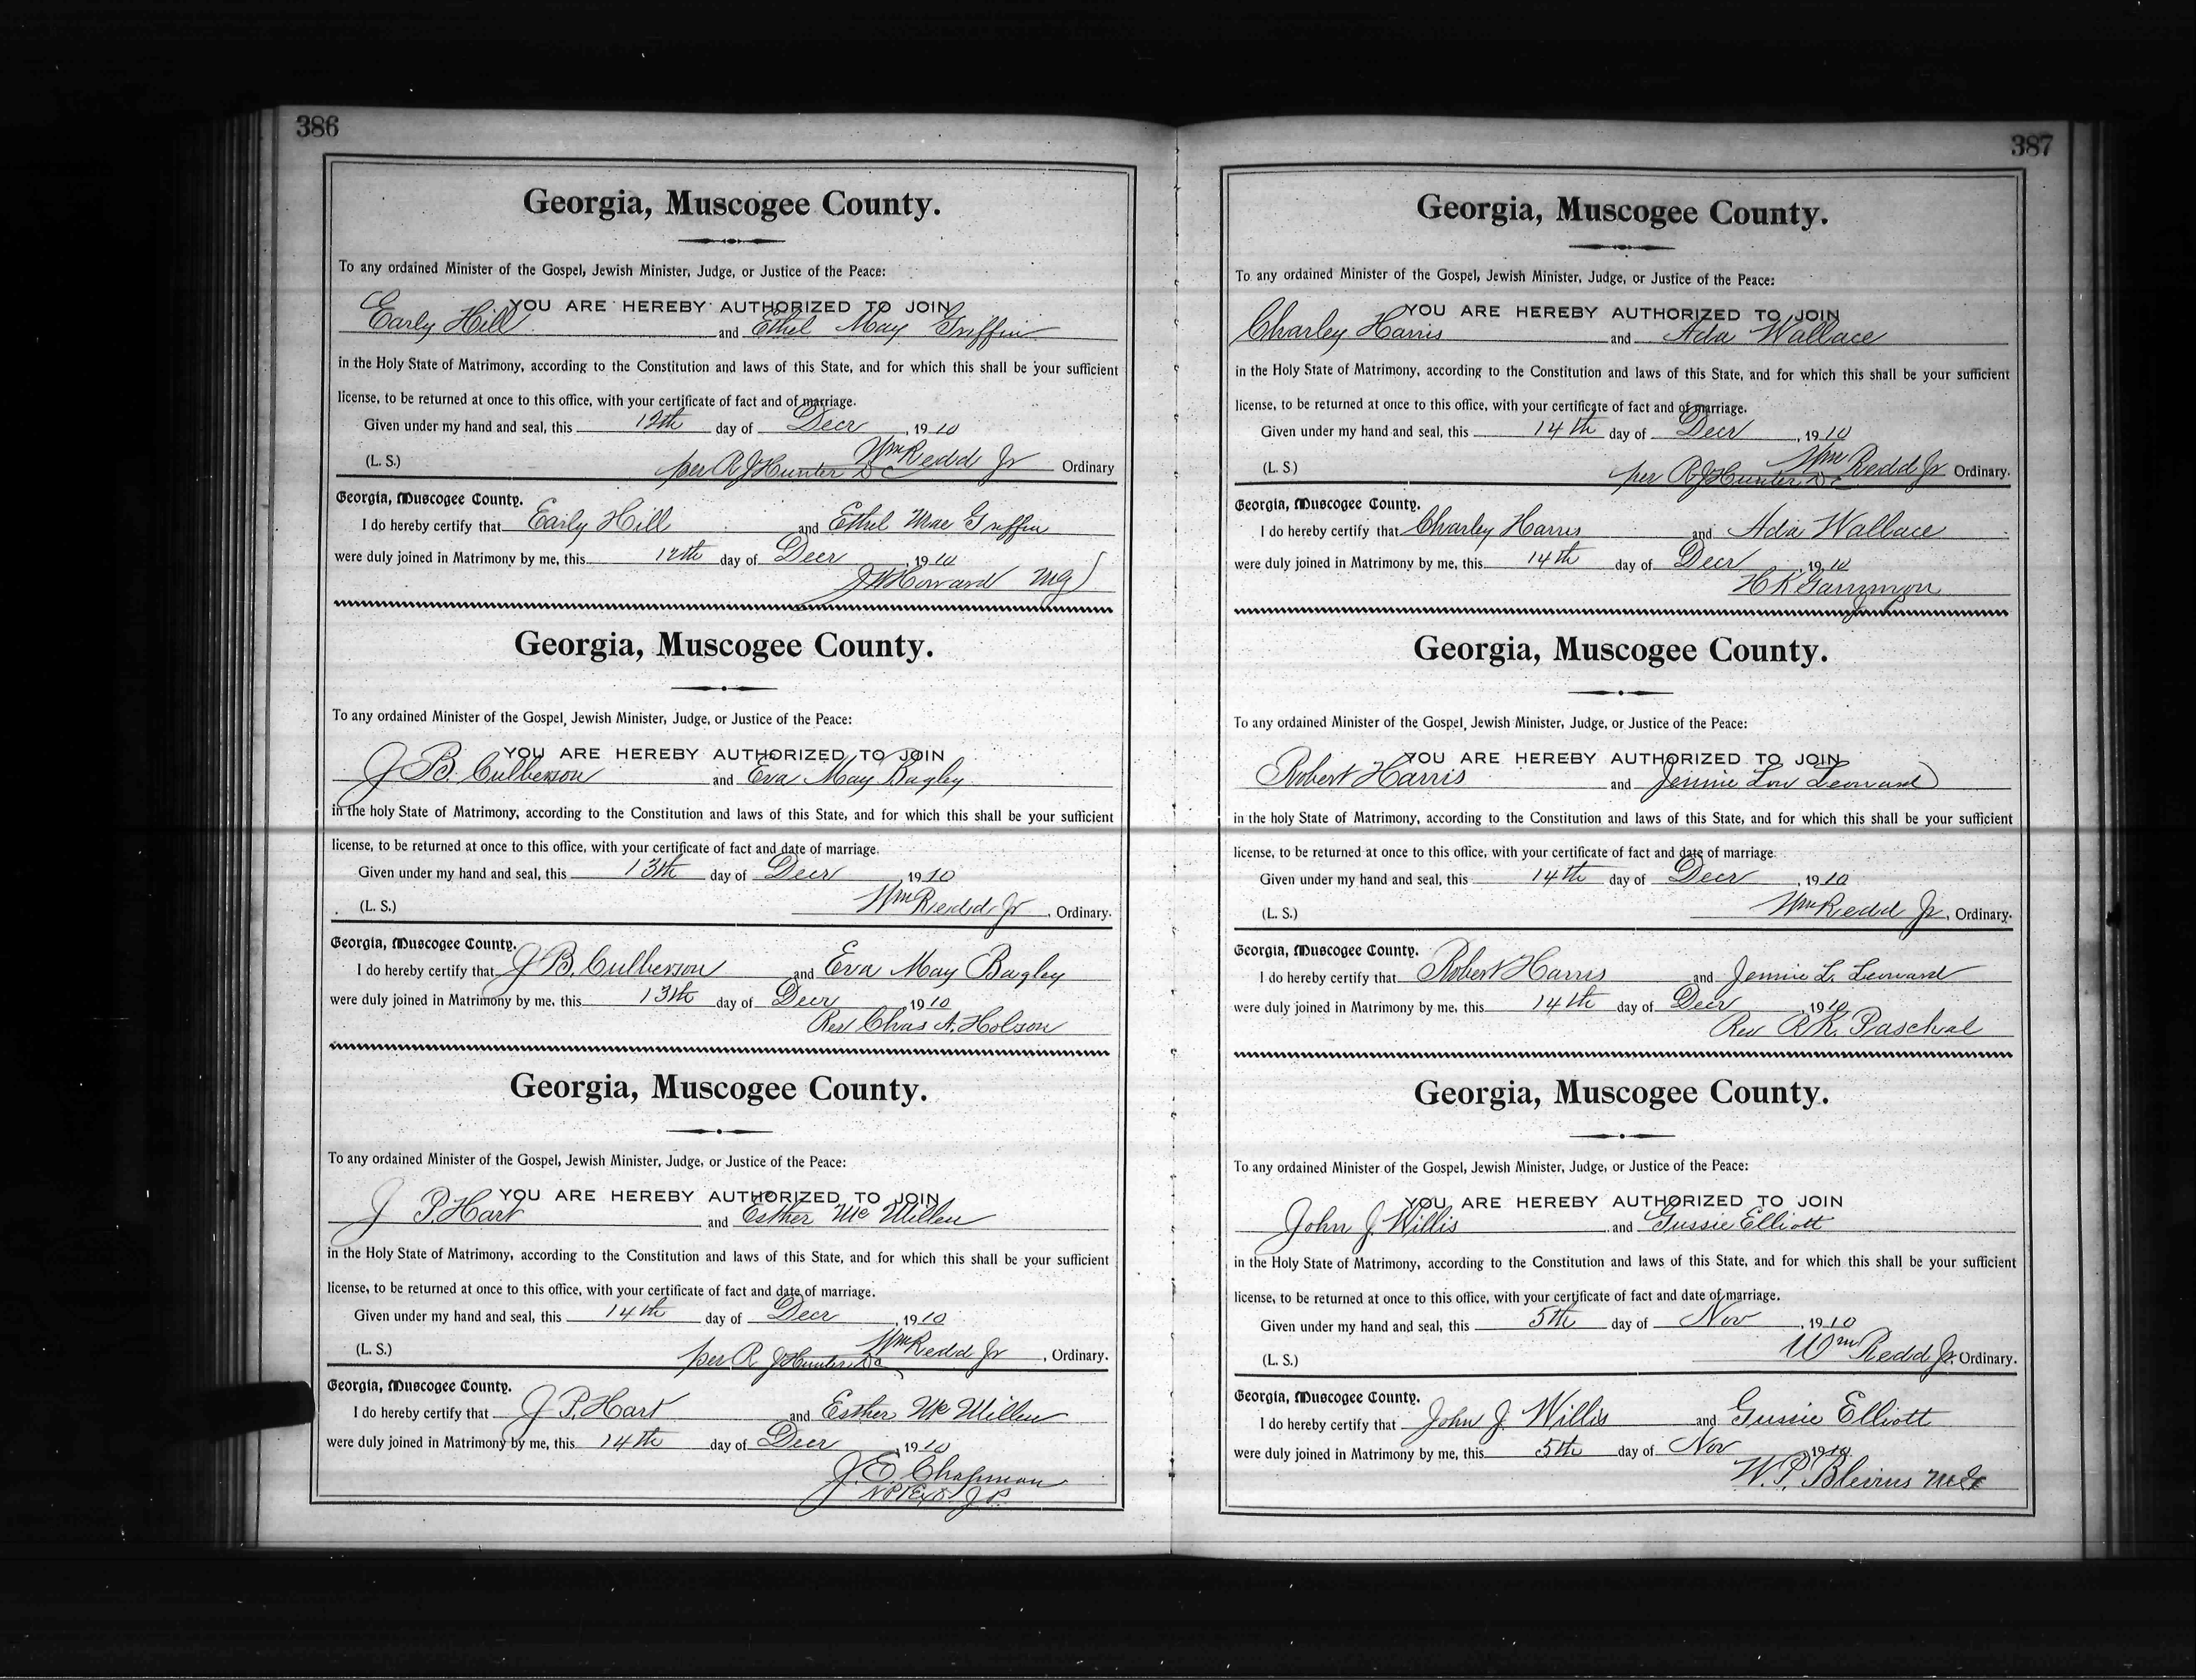 386
Georgia, Muscogee County.
To any ordained Minister of the Gospel, Jewish Minister, Judge, or Justice of the Peace:
YOU ARE HEREBY AUTHORIZED TO JOIN
Early Hill and Ethel May Griffin
in the Holy State of Matrimony, according to the Constitution and laws of this State, and for which this shall be your sufficient
license, to be returned at once to this office, with your certificate of fact and of marriage.
Given under my hand and seal, this 12th day of Decr, 1910
Wm Redd Jr
(L. S.) per R J Hunter DC Ordinary
Georgia, Muscogee County.
I do hereby certify that Early Hill and Ethel Mae Griffin
were duly joined in Matrimony by me, this 12th day of Decr, 1910
Howard MG
Georgia, Muscogee County.
To any ordained Minister of the Gospel, Jewish Minister, Judge, or Justice of the Peace:
YOU ARE HEREBY AUTHORIZED TO JOIN
J B. Culberson and Eva May Bagley
in the holy State of Matrimony, according to the Constitution and laws of this State, and for which this shall be your sufficient
license, to be returned at once to this office, with your certificate of fact and date of marriage.
Given under my hand and seal, this 13th day of Decr, 1910
(L. S.) Wm Redd Jr, Ordinary.
Georgia, Muscogee County.
I do hereby certify that J B. Culberson and Eva May Bagley
were duly joined in Matrimony by me, this 13th day of Decr, 1910
Rev Chas A. Holson
Georgia, Muscogee County.
To any ordained Minister of the Gospel, Jewish Minister, Judge, or Justice of the Peace:
YOU ARE HEREBY AUTHORIZED TO JOIN
J P. Hart and Esther Mc Millen
in the Holy State of Matrimony, according to the Constitution and laws of this State, and for which this shall be your sufficient
license, to be returned at once to this office, with your certificate of fact and date of marriage.
Given under my hand and seal, this 14th day of Decr, 1910
Wm Redd Jr
(L. S.) per R J Hunter DC, Ordinary.
Georgia, Muscogee County.
I do hereby certify that J P. Hart and Esther Mc Millen
were duly joined in Matrimony by me, this 14th day of Decr, 1910
J. E. Chapman
J P.
387
Georgia, Muscogee County.
To any ordained Minister of the Gospel, Jewish Minister, Judge, or Justice of the Peace:
YOU ARE HEREBY AUTHORIZED TO JOIN
Charley Harris and Ada Wallace
in the Holy State of Matrimony, according to the Constitution and laws of this State, and for which this shall be your sufficient
license, to be returned at once to this office, with your certificate of fact and of marriage.
Given under my hand and seal, this 14th day of Decr, 1910
Wm Redd Jr
(L. S) per R J Hunter DC Ordinary.
Georgia, Muscogee County.
I do hereby certify that Charley Harris and Ada Wallace
were duly joined in Matrimony by me, this 14th day of Decr, 1910
H K
Georgia, Muscogee County.
To any ordained Minister of the Gospel, Jewish Minister, Judge, or Justice of the Peace:
YOU ARE HEREBY AUTHORIZED TO JOIN
Robert Harris and Jennie Lou Leonard
in the holy State of Matrimony, according to the Constitution and laws of this State, and for which this shall be your sufficient
license, to be returned at once to this office, with your certificate of fact and date of marriage
Given under my hand and seal, this 14th day of Decr, 1910
(L. S.) Wm Redd Jr, Ordinary.
Georgia, Muscogee County.
I do hereby certify that Robert Harris and Jennie L. Leonard
were duly joined in Matrimony by me, this 14th day of Decr, 1910
Rev R K. Paschal
Georgia, Muscogee County.
To any ordained Minister of the Gospel, Jewish Minister, Judge, or Justice of the Peace:
YOU ARE HEREBY AUTHORIZED TO JOIN
John J. Willis and Gussie Elliott
in the Holy State of Matrimony, according to the Constitution and laws of this State, and for which this shall be your sufficient
license, to be returned at once to this office, with your certificate of fact and date of marriage.
Given under my hand and seal, this 5th day of Nov, 1910
(L. S.) Wm Redd Jr. Ordinary.
Georgia, Muscogee County.
I do hereby certify that John J. Willis and Gussie Elliott
were duly joined in Matrimony by me, this 5th day of Nov, 1910
W. P. Blevins MG